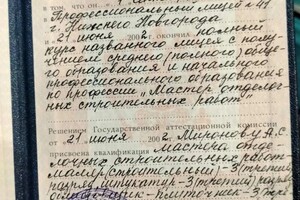 в том, что он
Профессиональный лицей № 41
г. Нижнего Новгорода
и 21 июня 2002 г. окончил полный
курс названного лицея с полу-
чением среднего (полного) общего
образования и начального
профессионального образования
по профессии „Мастер отделоч-
ных строительных работ"
Решением Государственной аттестационной комиссии
от 21 июня 2002 г. Миронову А.С.
присвоена квалификация мастера отде-
лочных строительных работ-
маляр (строительный) - 3 (третий)
разряд, штукатур - 3 (третий) разряд,
облицовщик - плиточник - 3 (тре